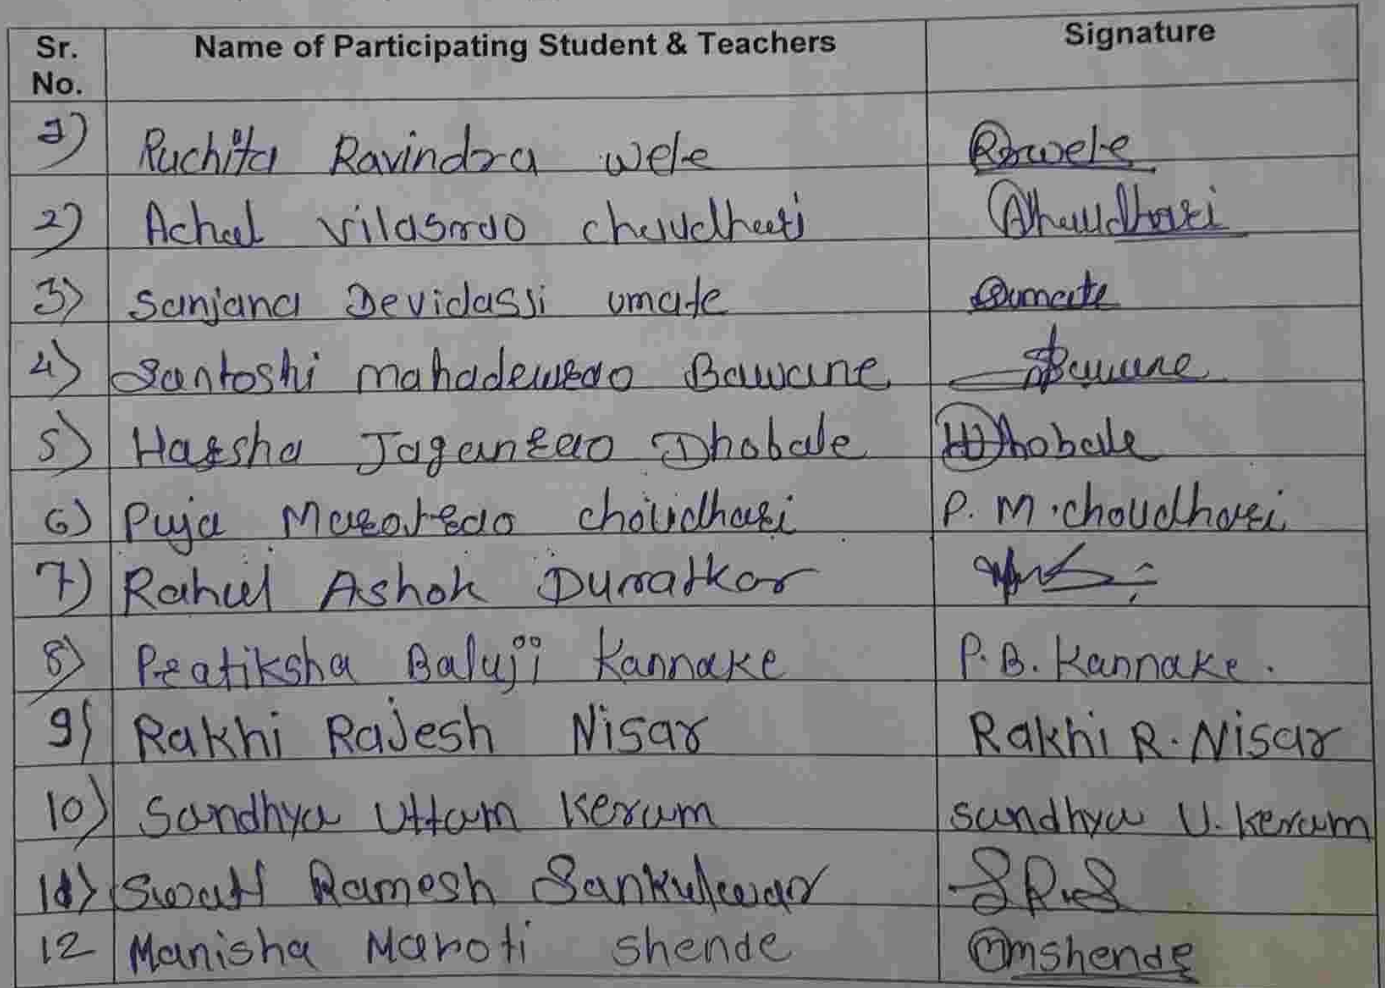 Sr. No. Name of Participating Student & Teachers Signature
1) Ruchita Ravindra wele Rrwele
2) Achal vilasrao choudhari Ahaudhari
3) Sanjana Devidassi umate Sumate
4) Santoshi mahadewrao Bawane Bawane
5) Harsha Jaganrao Dhobale HDhobale
6) Puja Marotrao choudhari P. M. choudhari
7) Rahul Ashok Durratkar
8) Pratiksha Baluji Kannake P. B. Kannake.
9) Rakhi Rajesh Nisar Rakhi R. Nisar
10) Sandhya Uttam Keram sandhya U. keram
11) Swati Ramesh Sankulwar S.R.S
12 Manisha Maroti shende Mmshende